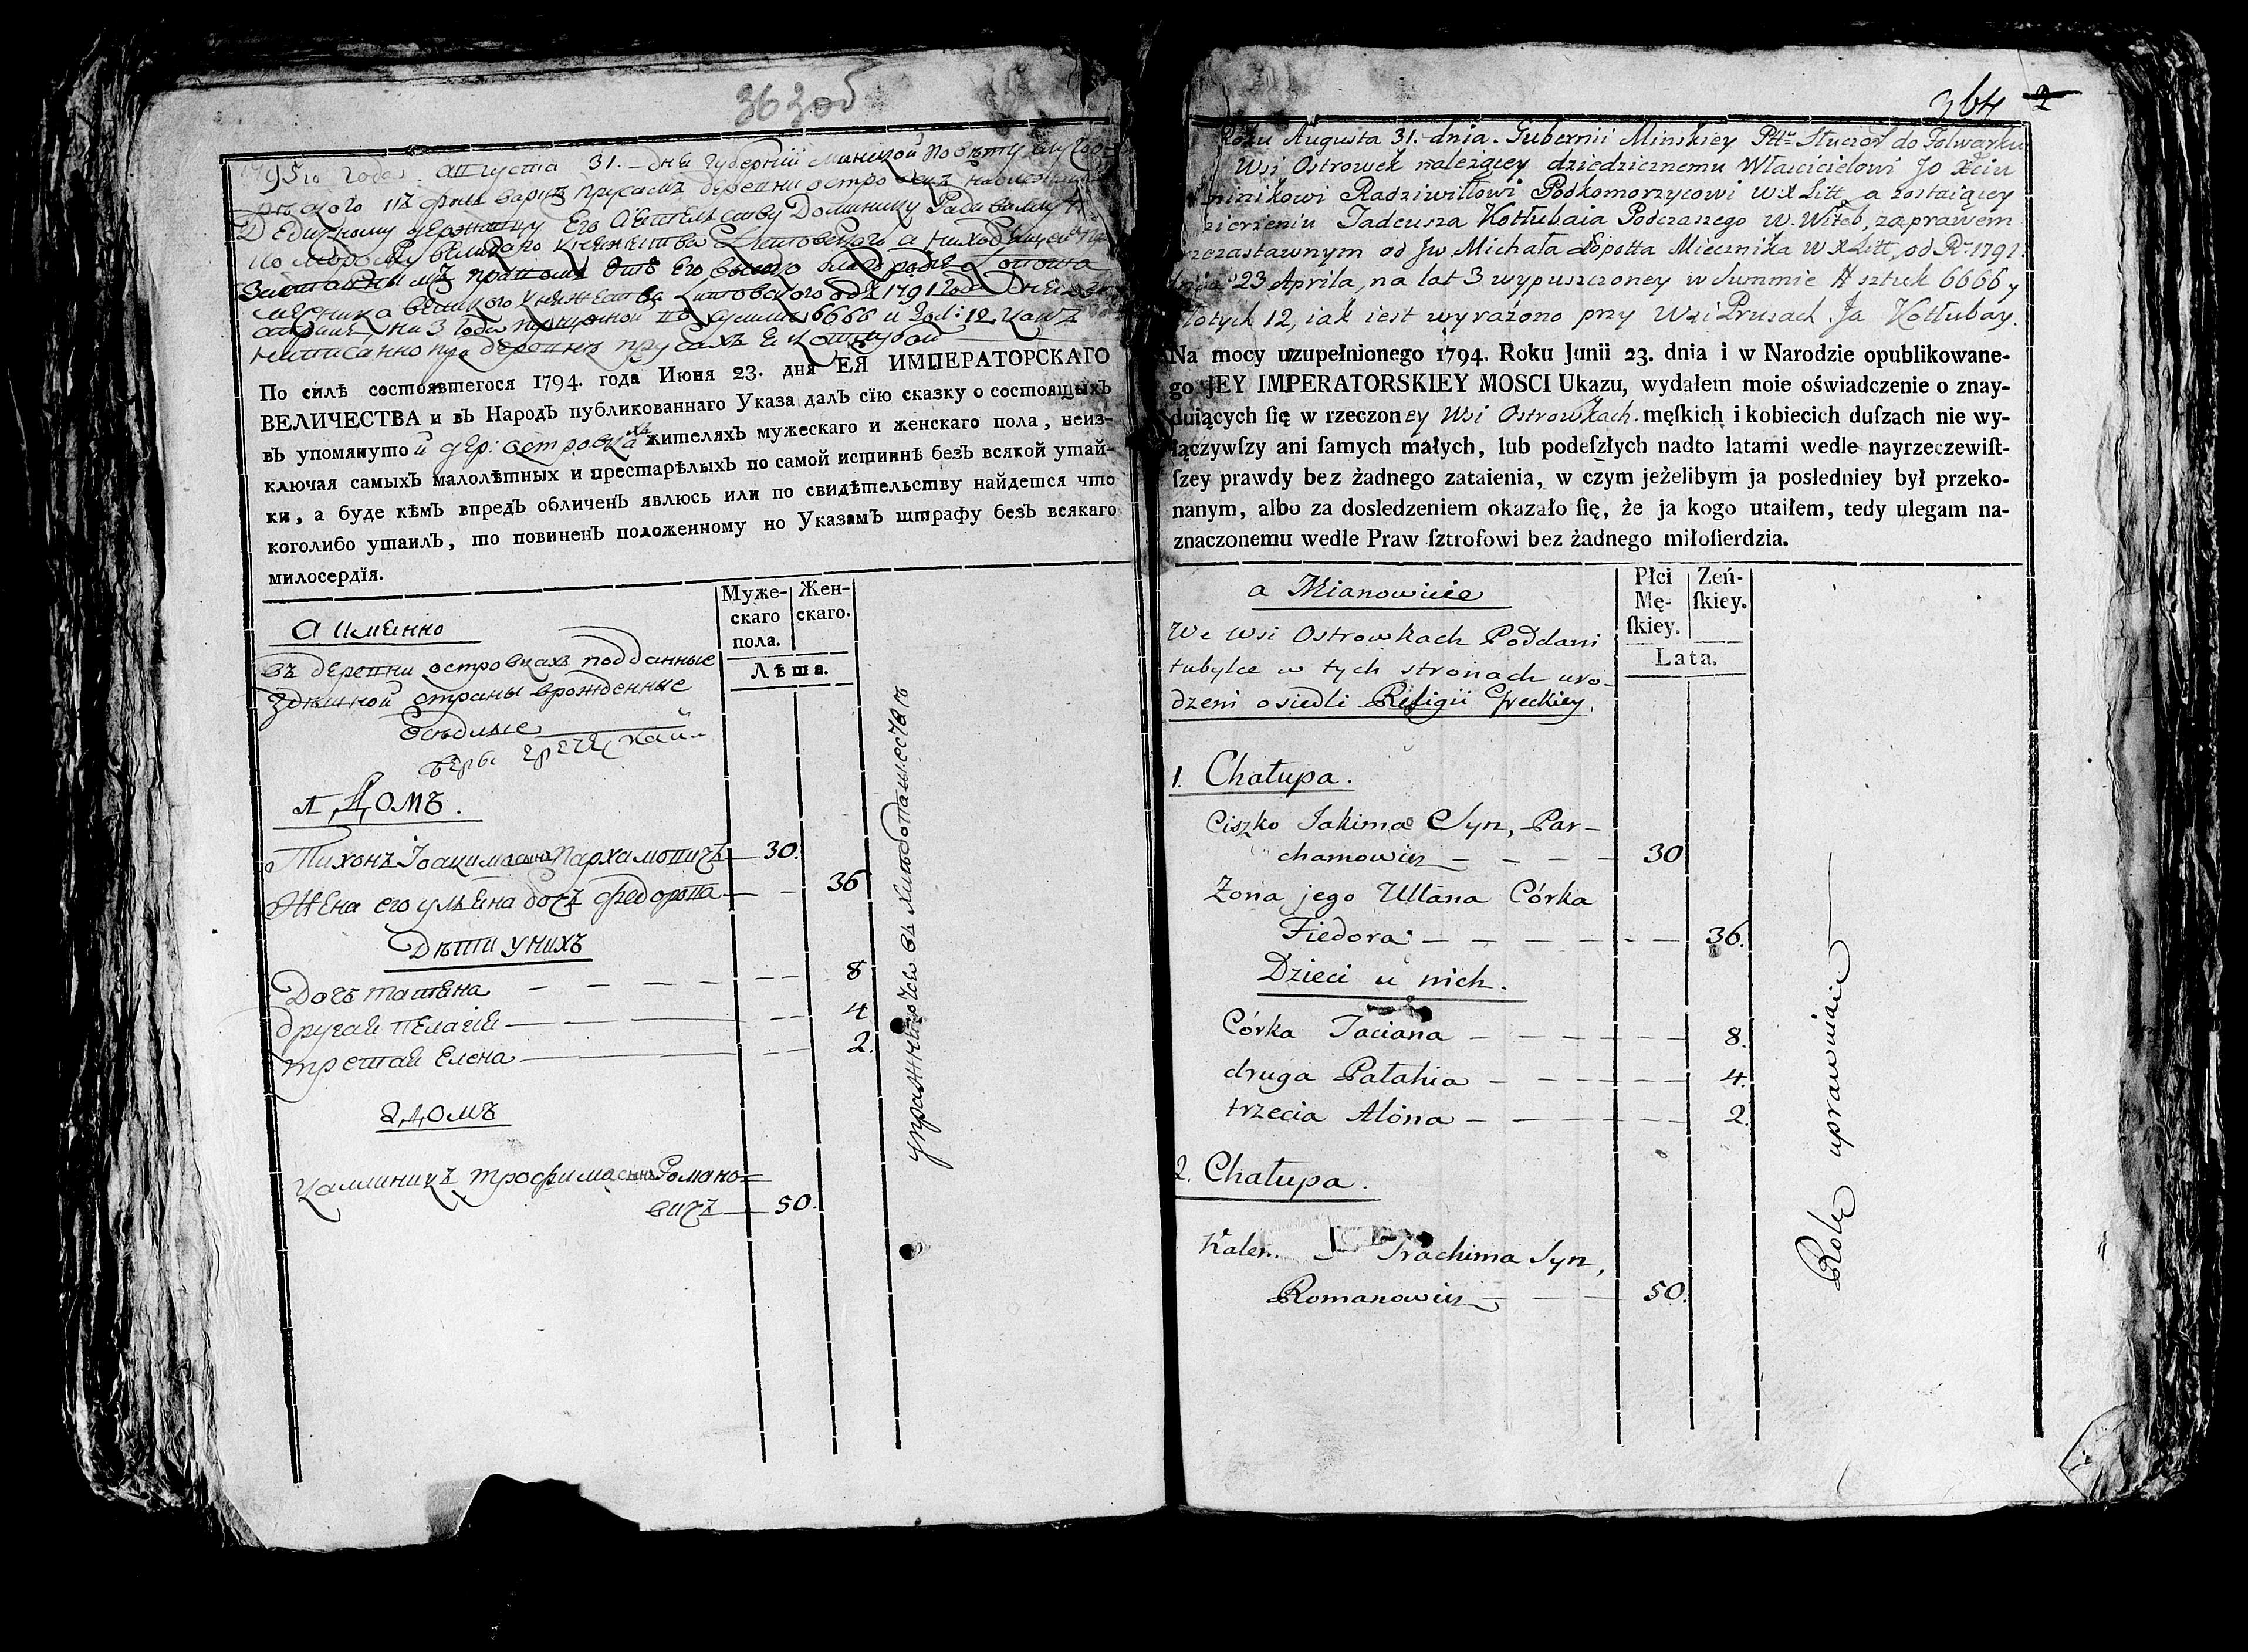 363 об
95го года Августа 31. дня Губернїи Минской
Дедичному Его Доминику
великого княжества Литовского
правом от его
великого княжества Литовского од 1791 года
на 3 года в сумме 6666 и зол: 12 как
написанно при деревне Прусах
По силѣ состоявшегося 1794. года Июня 23. дня ЕЯ ИМПЕРАТОРСКАГО
ВЕЛИЧЕСТВА и въ НародЪ публикованнаго Указа далЪ сїю сказку о состоящыхЪ
въ упомянутой дер: островкахъ жителяхЪ мужескаго и женскаго пола, неиз-
ключая самыхЪ малолѣтныхъ и престарѣлыхЪ по самой истиннѣ безЪ всякой утай-
ки, а буде кѣмЪ впредЪ обличенЪ явлюсь или по свидѣтельству найдется что
коголибо утаилЪ, то повиненЪ положенному по УказамЪ штрафу безЪ всякаго
милосердїя.
Муже-
скаго
пола.
Жен-
скаго.
Лѣта.
А именно
въ деревни островкахъ подданные
здешной страны врожденные
Оседлые
веры греческай
1 Домъ.
Тихонъ Іоакима сынъ Пархамовичъ — 30.
Жена его ульяна дочъ федорова — 36
Дети у нихъ
Дочъ татяна — 8
другая пелагия — 4
третая Елена — 2.
2 домъ
Каллиникъ трофима сынъ Романо=
вичъ — 50.
упражняючся въ хлебопашестве
364 2
Roku Augusta 31. dnia. Gubernii Minskiey Pttu Słuczo do Folwarku
Wsi Ostrowek należącey dziedzicznemu Właścicielowi Jo Xciu
minikowi Radziwiłłowi Podkomorzycowi W X Litt, a zostaiącey
dzierżeniu Tadeusza Kotłubaia Podczaszego W. Witeb, za prawem
zastawnym od Jw Michała Łopotta Miecznika W X Litt, od Ru 1791.
dnia 23 Aprila, na lat 3 wypuszczoney w Summie # sztuk 6666 y
złotych 12, iak iest wyrażono przy Wsi Prusach. Ja Kotłubay.
Na mocy uzupełnionego 1794. Roku Junii 23. dnia i w Narodzie opublikowane-
go JEY IMPERATORSKIEY MOSCI Ukazu, wydałem moie oświadczenie o znay-
duiących ſię w rzeczoney Wsi Ostrowkach. męſkich i kobiecich duſzach nie wy-
łączywſzy ani ſamych małych, lub podeſzłych nadto latami wedle nayrzeczewiſt-
ſzey prawdy bez żadnego zataienia, w czym jeżelibym ja posledniey był przeko-
nanym, albo za dosledzeniem okazało ſię, że ja kogo utaiłem, tedy ulegam na-
znaczonemu wedle Praw ſztrofowi bez żadnego miłoſierdzia.
Płci
Mę-
ſkiey.
Zeń-
ſkiey.
Lata.
a Mianowicie
We Wsi Ostrowkach Poddani
tubylce w tych stronach uro-
dzeni osiedli Religii Greckiey.
1. Chałupa.
Ciszko Jakima Syn, Par-
chamowicz — 30
Zona jego Ullana Córka
Fiedora — 36.
Dzieci u nich.
Córka Taciana — 8.
druga Pałahia — 4.
trzecia Alóna — 2.
2. Chałupa.
Kalen Trachima Syn,
Romanowicz — 50.
Rolę uprawniaie